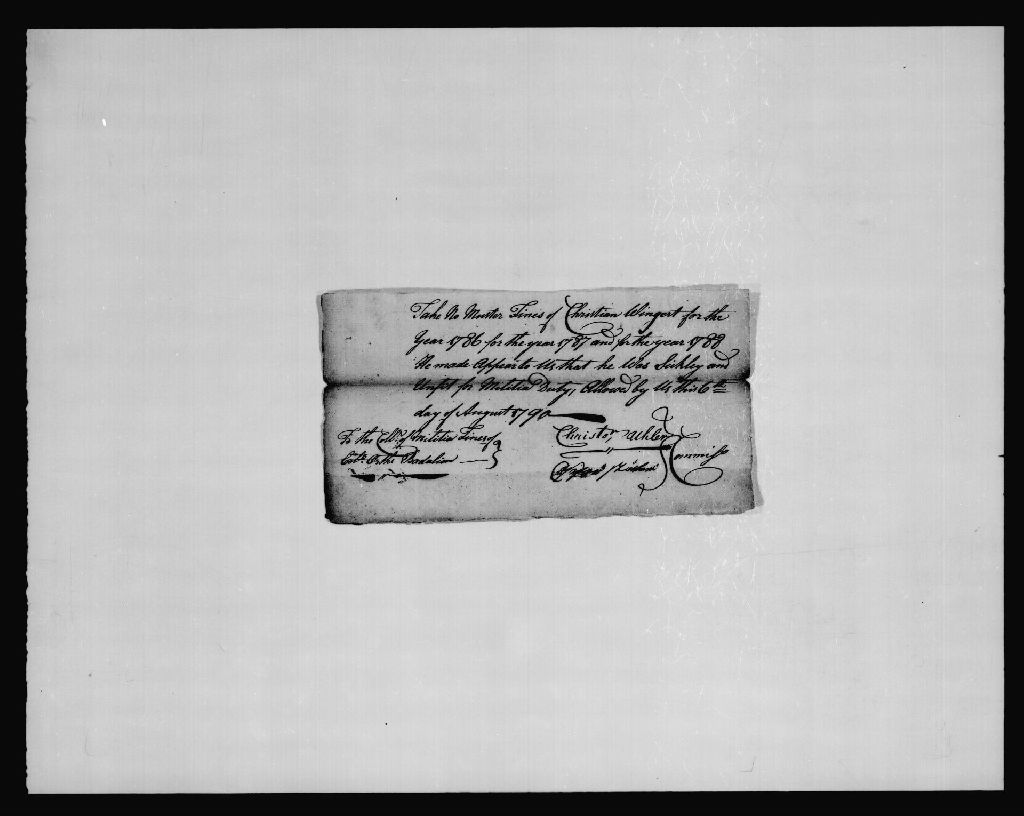 Take No Muster Fines of Christian Wingert for the
Year 1786 for the year 1787 and for the year 1788
He made Appear to Us that he Was Sickley and
Unfit for Militia Duty, Allowed by Us this 6th
day of August 1790
To the Collr. of Militia Fines of
the Batalion
Christor Uhler
Commiss